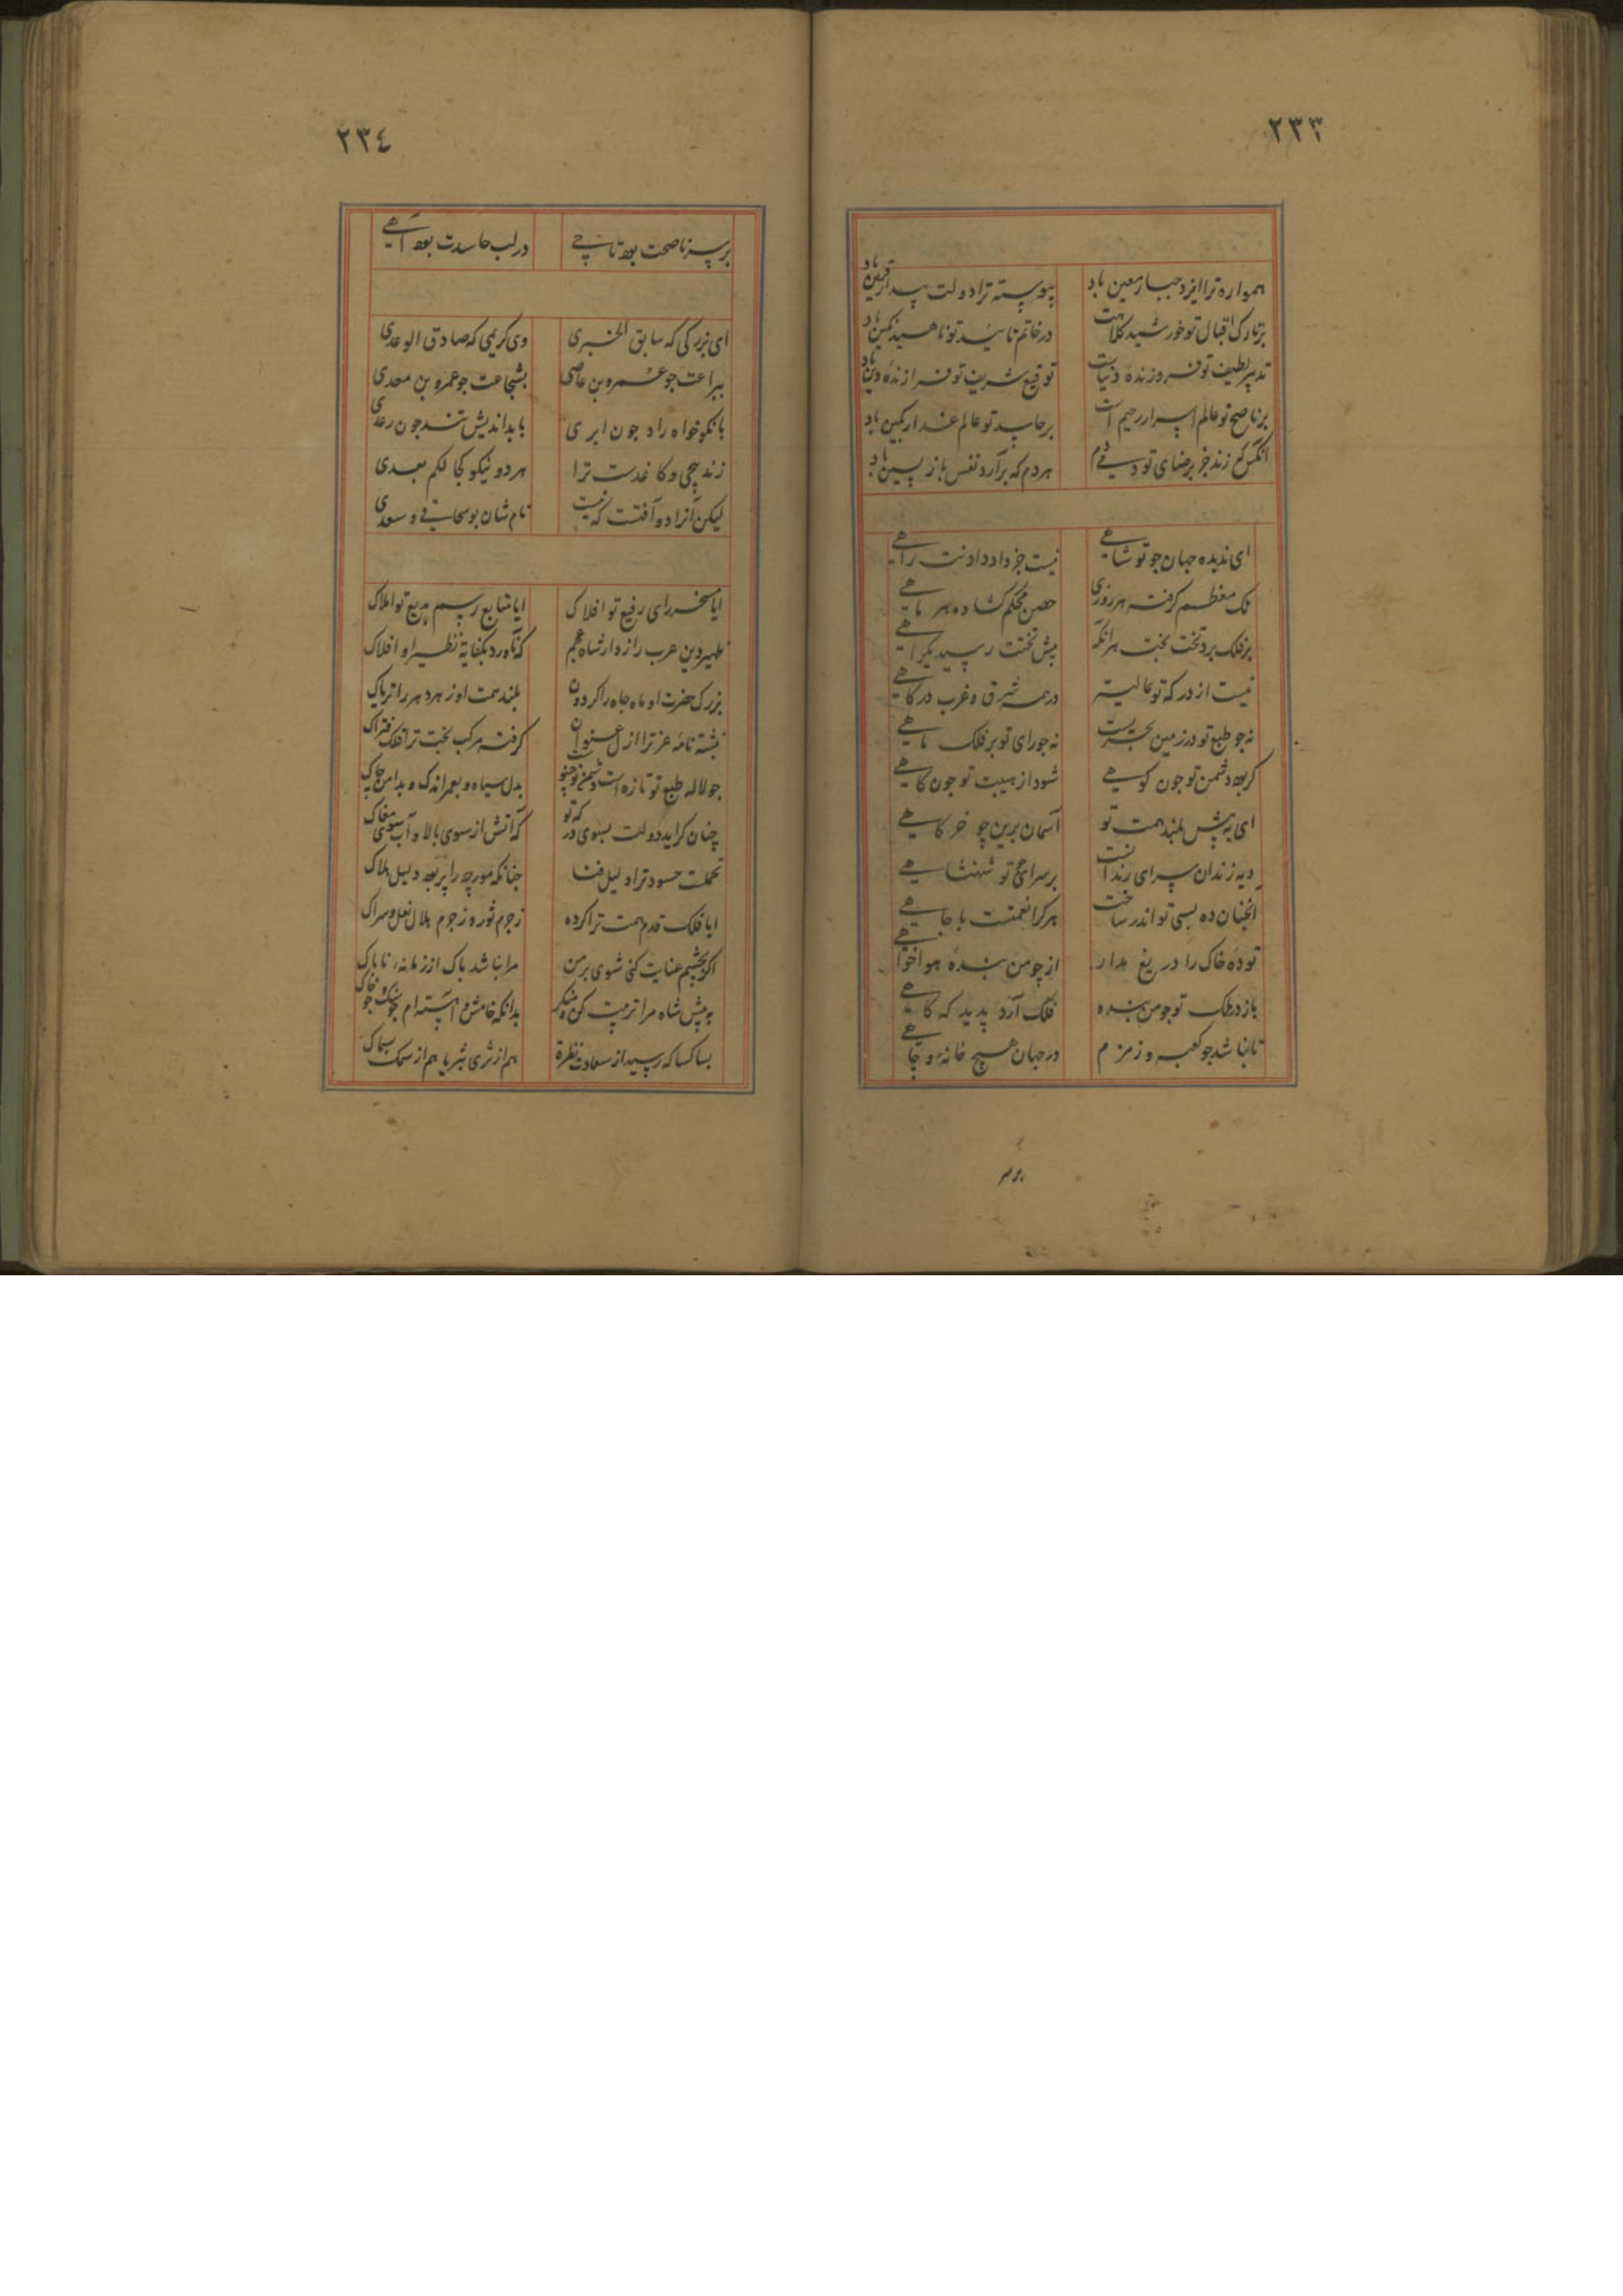 ٢٣٣
همواره ترا ایزد جبار معین باد پیوسته ترا دولت پیدار قرین باد
بر تارک اقبال تو خورشید کلاهست در خاتم تائید تو ناهید نکین باد
تدبیر لطیف تو فروزندهٔ دنیاست توقیع شریف تو فرازندهٔ دین باد
بر ناصح تو عالم اسرار رحیم است بر حاسد تو عالم غدار بکین باد
انکس که زند جز برضای تو دمی هردم که برآرد نفس باز پسین باد
ای ندیده جهان جو تو شاهی نیست جز داد دادنت راهی
ملک معظم کرفته هر روزی حصن محکم کشاده هر ماهی
بر فلک برد تخت بخت هرانکه پیش تختت رسید یکراهی
نیست از درکه تو عالیتر در همه شرق و غرب درکاهی
نه جو طبع تو در زمین بحریست نه جو رای تو بر فلک ماهی
کر بود دشمن تو جون کوهی شود از هیبت تو جون کاهی
ای به پیش بلند همت تو آسمان برین چو خرکاهی
دیه زندان سرای رندانست بر سرای تو شهنشاهی
انجنان ده بسی تواند ساخت هرکرا نعمتست با جاهی
تودهٔ خاک را دریغ مدار از چو من بندهٔ هواخواهی
باز در ملک تو جو من بنده فلک آرد پدید که کاهی
تا نباشد جو کعبه و زمزم در جهان هیچ خانه و چاهی
بر سر
٢٣٤
بر سر ناصحت بود تاجی در لب حاسدت بود آهی
ای بزرکی که سابق الخبری وی کریمی که صادق الوعدی
ببراعت جو عمرو بن عاصی بشجاعت جو عمرو بن معدی
با نکوخواه راد جون ابری با بداندیش تند جون رعدی
زندیچی و کاغدست ترا هر دو نیکو کجا لکم بعدی
لیکن آنرا دو آفتست که نیست نام شان بوسحاقی و سعدی
ایا مسخر رای رفیع تو افلاک ایا متابع رسم بدیع تو املاک
ظهیر دین عرب رازدار شاه عجم که ناورد بکفایة نظیر او افلاک
بزرک حضرت او ماه جاه را کردون بلند همت او زهر دهر را تریاک
نبشته نامهٔ عز ترا ازل عنوان کرفته مرکب بخت ترا فلک فتراک
جو لاله طبع تو تازه است دشمن تو جنو بدل سیاه و بعمر اندک و بدامن چاک
چنان کراید دولت بسوی درکه تو که آتش از سوی بالا و آب سوی مغاک
تحملت حسود ترا دلیل فنا جنانکه مورچه را پر بود دلیل هلاک
ایا فلک قدم همت ترا کرده ز جرم ثور و ز جرم هلال نعل و سراک
اکر بچشم عنایت کنی شوی بر من مرا نباشد باک از زمانهٔ ناباک
به پیش شاه مرا تربیت کن و منکر بدانکه خامش و آهسته ام جو سنک و جو خاک
بسا کسا که رسید از سعادت نظرة هم از ثری بثریا هم از سمک بسماک